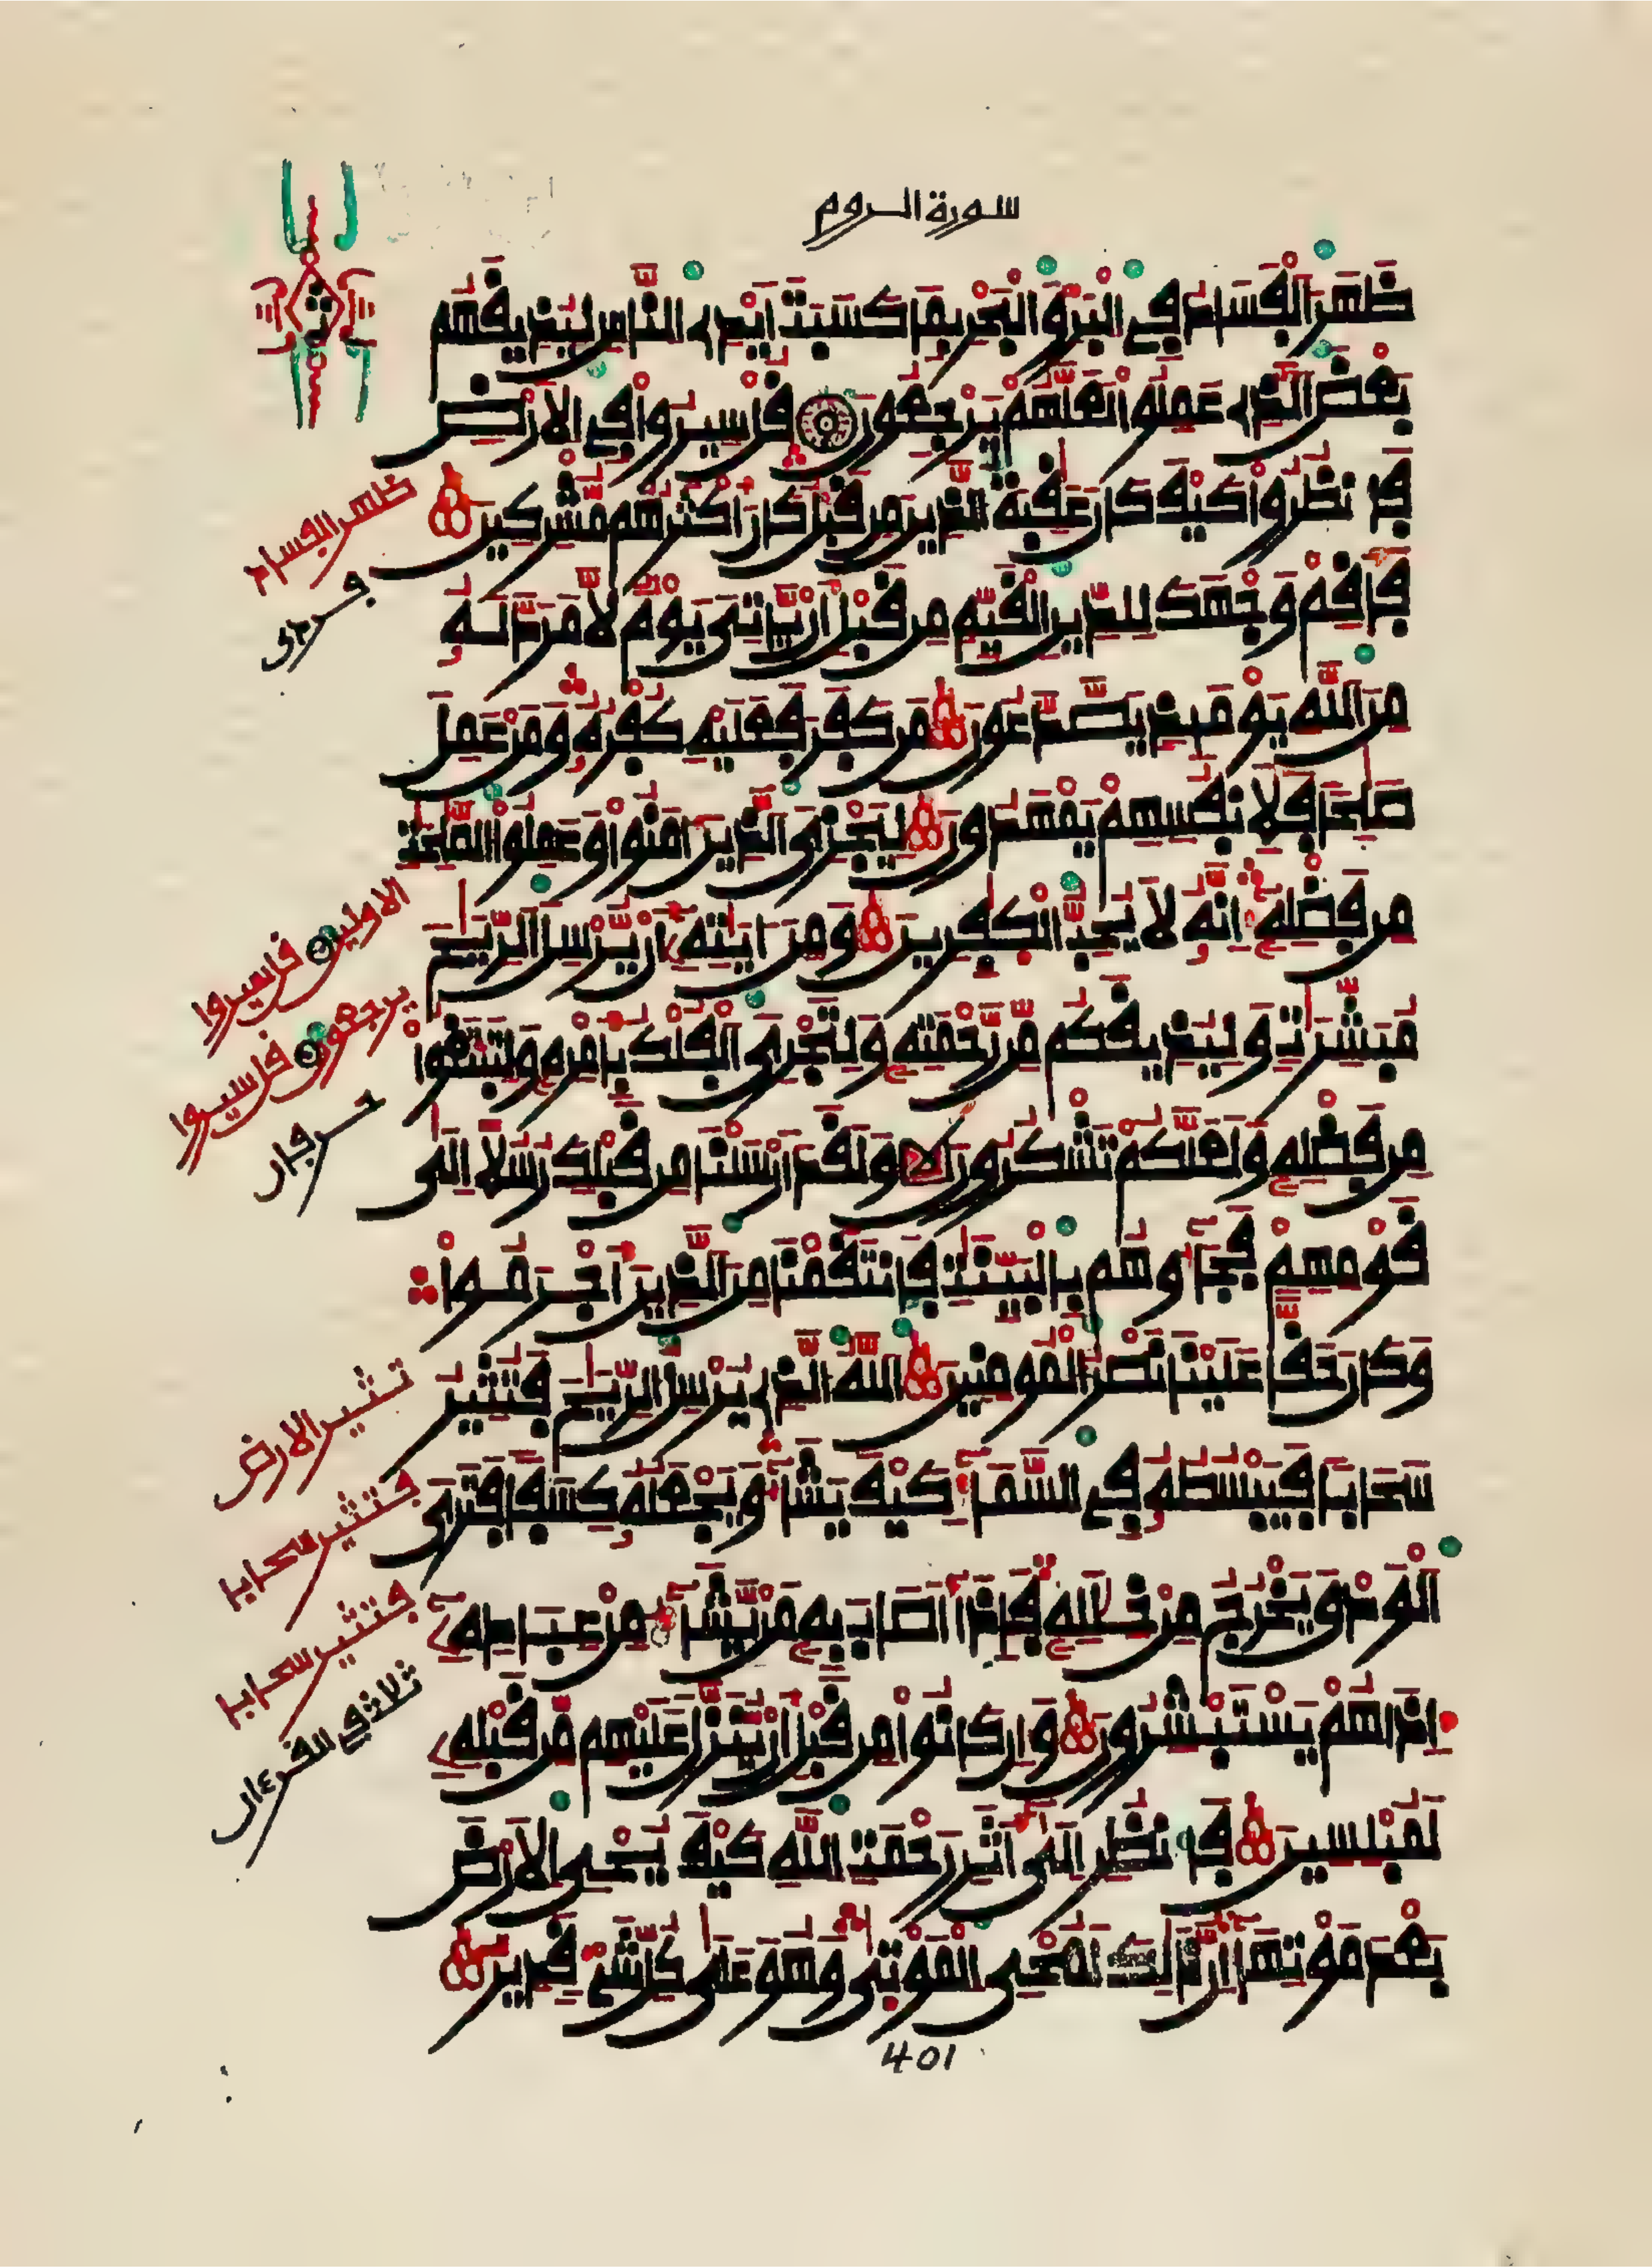 سورة الروم
ظَهَرَ الْفَسَادُ فِي الْبَرِّ وَالْبَحْرِ بِمَا كَسَبَتَ اَيْدِي النَّاسِ لِيُذِيقَهُم
بَعْضَ الَّذِي عَمِلُواْ لَعَلَّهُمْ يَرْجِعُونَ قُلْ سِيرُواْ فِي الْاَرْضِ
فَانظُرُواْ كَيْفَ كَانَ عَٰقِبَةُ الَّذِينَ مِن قَبْلُ كَانَ أَكْثَرُهُم مُّشْرِكِينَ
فَأَقِمْ وَجْهَكَ لِلدِّينِ الْقَيِّمِ مِن قَبْلِ أَنْ يَّاتِيَ يَوْمٌ لَّا مَرَدَّ لَهُ
مِنَ اللَّهِ يَوْمَئِذٍ يَصَّدَّعُونَ مَن كَفَرَ فَعَلَيْهِ كُفْرُهُ وَمَنْ عَمِلَ
صَٰلِحًا فَلِأَنفُسِهِمْ يَمْهَدُونَ لِيَجْزِيَ الَّذِينَ ءَامَنُواْ وَعَمِلُواْ الصَّٰلِحَٰتِ
مِن فَضْلِهِ إِنَّهُ لَا يُحِبُّ الْكَٰفِرِينَ وَمِنْ ءَايَٰتِهِ أَنْ يُّرْسِلَ الرِّيَاحَ
مُبَشِّرَٰتٍ وَلِيُذِيقَكُم مِّن رَّحْمَتِهِ وَلِتَجْرِيَ الْفُلْكُ بِأَمْرِهِ وَلِتَبْتَغُواْ
مِن فَضْلِهِ وَلَعَلَّكُمْ تَشْكُرُونَ وَلَقَدَ اَرْسَلْنَا مِن قَبْلِكَ رُسُلًا اِلَىٰ
قَوْمِهِمْ فَجَاءُوهُم بِالْبَيِّنَٰتِ فَانتَقَمْنَا مِنَ الَّذِينَ أَجْرَمُواْ
وَكَانَ حَقًّا عَلَيْنَا نَصْرُ الْمُومِنِينَ اللَّهُ الَّذِي يُرْسِلُ الرِّيَٰحَ فَتُثِيرُ
سَحَابًا فَيَبْسُطُهُ فِي السَّمَاءِ كَيْفَ يَشَاءُ وَيَجْعَلُهُ كِسَفًا فَتَرَى
الْوَدْقَ يَخْرُجُ مِنْ خِلَٰلِهِ فَإِذَا أَصَابَ بِهِ مَنْ يَّشَاءُ مِنْ عِبَادِهِ
إِذَا هُمْ يَسْتَبْشِرُونَ وَإِن كَانُواْ مِن قَبْلِ أَنْ يُّنَزَّلَ عَلَيْهِم مِّن قَبْلِهِ
لَمُبْلِسِينَ فَانظُرِ اِلَىٰ أَثَرِ رَحْمَتِ اللَّهِ كَيْفَ يُحْيِ الْاَرْضَ
بَعْدَ مَوْتِهَا إِنَّ ذَٰلِكَ لَمُحْيِ الْمَوْتَىٰ وَهُوَ عَلَىٰ كُلِّ شَيْءٍ قَدِيرٌ
ثمن
ظهر الفساد
الاولين قل سيروا
يرجعون قل سيروا
تثير الارض
فتثير سحابا
فتثير سحابا
ثلاث في القرءان
401